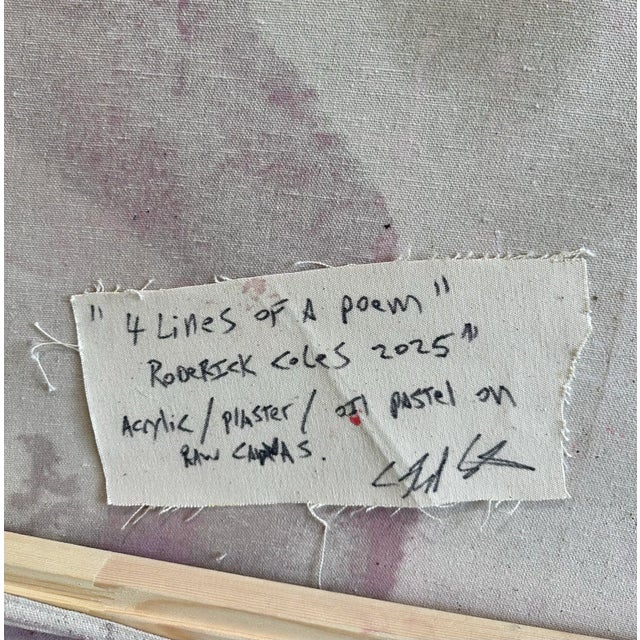 " 4 Lines OF A Poem "
RODERICK COLES 2025 "
Acrylic / Plaster / OIl PASTEL ON
RAW CANVAS.